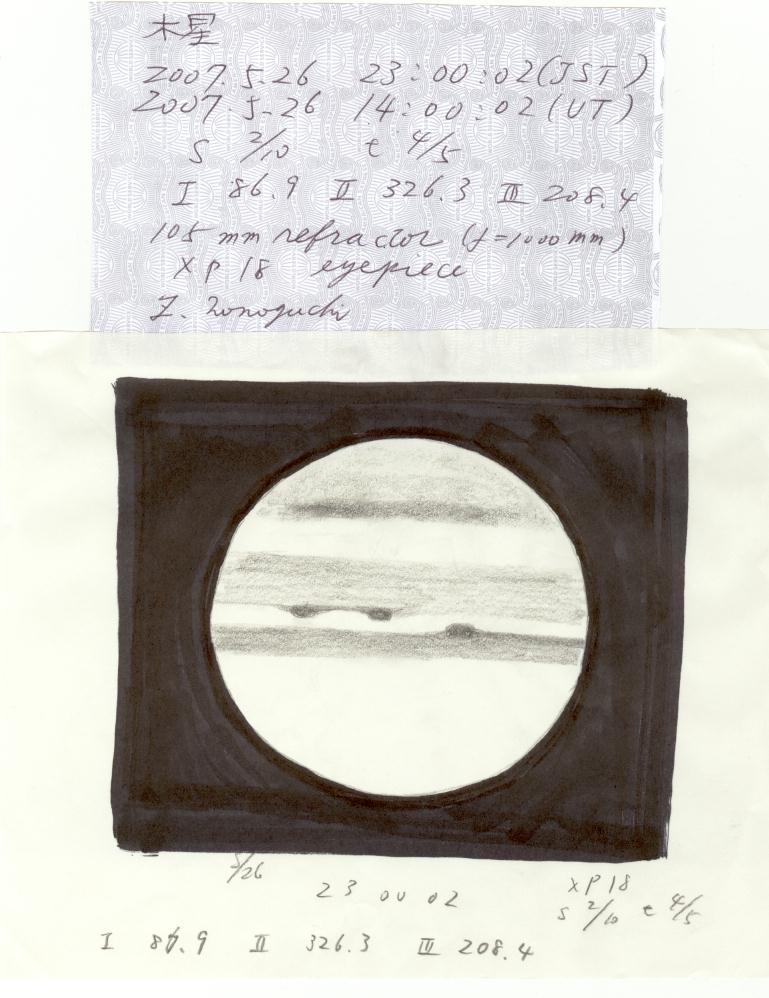 木星
2007.5.26 23:00:02(JST)
2007.5.26 14:00:02(UT)
S 2/10 t 4/5
I 86.9 II 326.3 III 208.4
105 mm refractor (f=1000mm)
XP 18 eyepiece
5/26
23 00 02
XP 18
S 2/10 t 4/5
I 86.9 II 326.3 III 208.4